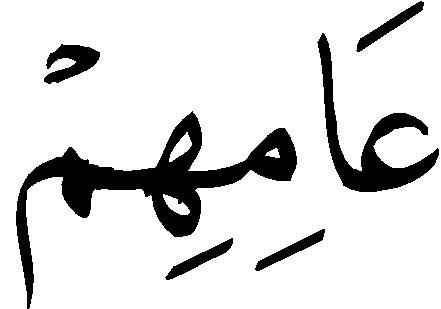 عَامِهِمْ